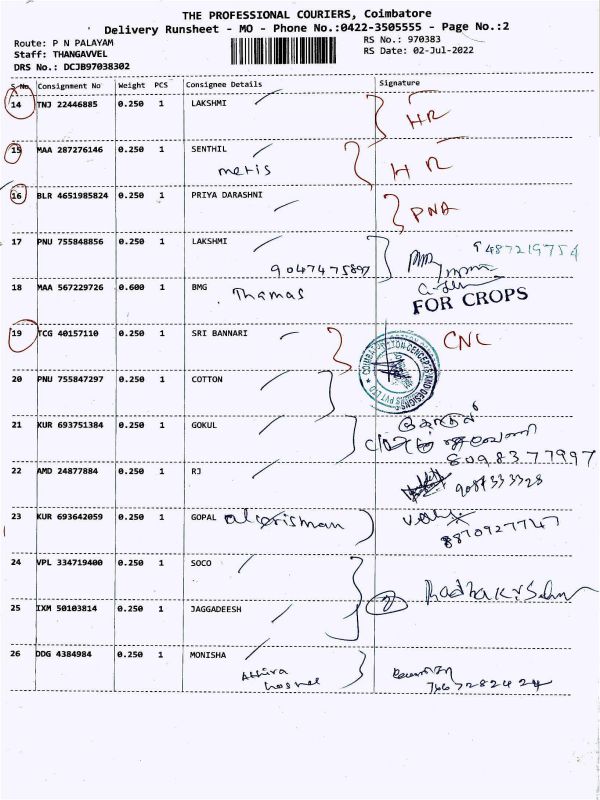 THE PROFESSIONAL COURIERS, Coimbatore
Delivery Runsheet - MO - Phone No.:0422-3505555 - Page No.:2
Route: P N PALAYAM
RS No.: 970383
Staff: THANGAVVEL
RS Date: 02-Jul-2022
DRS No.: DCJB97038302
S No Consignment No Weight PCS Consignee Details Signature
14 TNJ 22446885 0.250 1 LAKSHMI HR
15 MAA 287276146 0.250 1 SENTHIL HR
metis
16 BLR 4651985824 0.250 1 PRIYA DARASHNI PNA
17 PNU 755848856 0.250 1 LAKSHMI 9487219754
9047475897
18 MAA 567229726 0.600 1 BMG
Thamas
FOR CROPS
19 TCG 40157110 0.250 1 SRI BANNARI CNL
20 PNU 755847297 0.250 1 COTTON
21 KUR 693751384 0.250 1 GOKUL
8098377997
22 AMD 24877884 0.250 1 RJ
9087333328
23 KUR 693642059 0.250 1 GOPAL
8870927747
24 VPL 334719400 0.250 1 SOCO
25 IXM 50103814 0.250 1 JAGGADEESH
26 DDG 4384984 0.250 1 MONISHA
Athira
hostel
7667282424